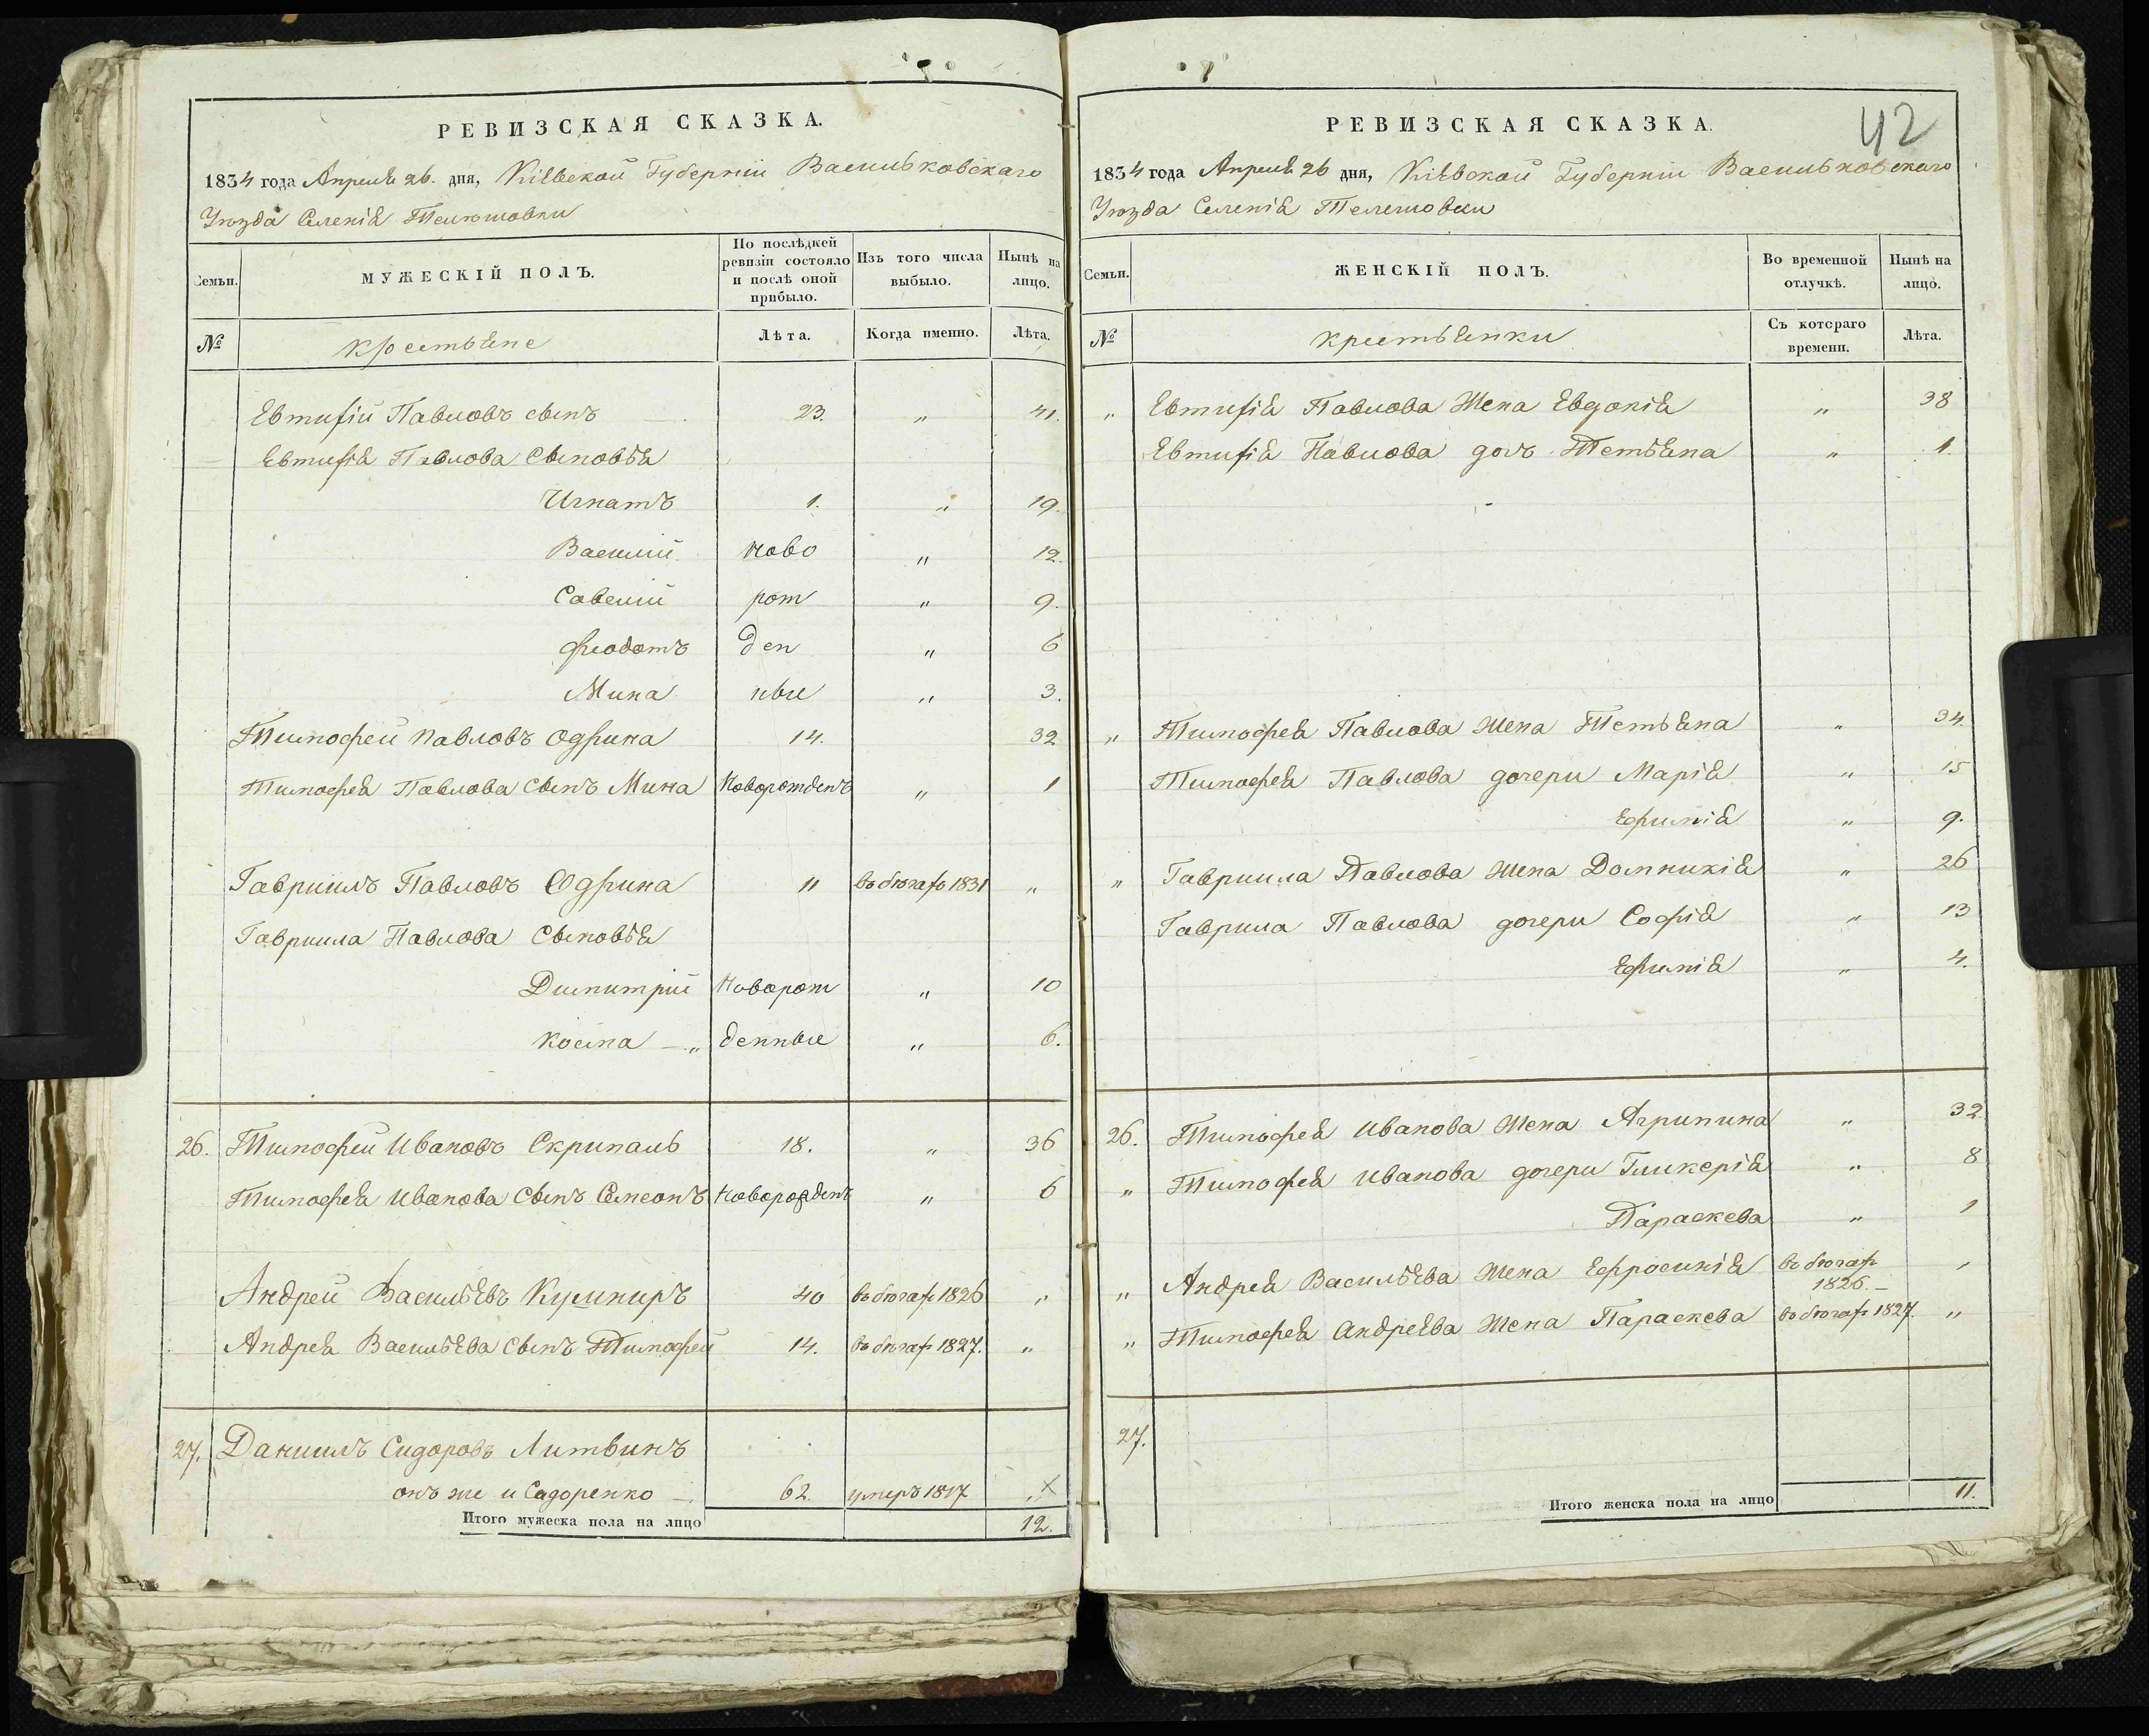 РЕВИЗСКАЯ СКАЗКА.
1834 года Апреля 26. дня, Кіевской Губерніи Васильковскаго
Уѣзда Селенія Телешовки
Семьи.
МУЖЕСКІЙ ПОЛЪ.
По послѣдней ревизіи состояло и послѣ оной прибыло.
Изъ того числа выбыло.
Нынѣ на лицо.
№ крестьяне Лѣта. Когда именно. Лѣта.
Евтифій Павловъ сынъ 23. " 41.
Евтифія Павлова Сыновья
Игнатъ 1. " 19.
Василий ново " 12.
Савелий рот " 9.
Феодотъ ден " 6
Мина ные " 3.
Тимофей Павловъ Одрина 14. 32
Тимофея Павлова Сынъ Мина Новоротденъ " 1
Гавриилъ Павловъ Одрина 11 въ бѣгаф 1831 "
Гавриила Павлова Сыновья
Димитрий Новорот " 10
Косма " денные " 6.
26. Тимофей Ивановъ Скрипаль 18. " 36
Тимофея Иванова Сынъ Симеонъ Новорожденъ " 6
Андрей Васильевъ Кушниръ 40 въ бѣгаф 1826 "
Андрея Васильева Сынъ Тимофей 14. въ бѣгаф 1827. "
27. Даниилъ Сидоровъ Литвинъ
онъ же и Садоренко 62. умеръ 1817 "
Итого мужеска пола на лицо 12.
42
РЕВИЗСКАЯ СКАЗКА.
1834 года Апреля 26 дня, Кіевской Губерніи Васильковскаго
Уѣзда Селенія Телешовки
Семьи.
ЖЕНСКІЙ ПОЛЪ.
Во временной отлучкѣ.
Нынѣ на лицо.
№ крестьянки Съ котораго времени. Лѣта.
" Евтифія Павлова Жена Евдокія " 38
Евтифія Павлова дочь Тетьяна " 1.
" Тимофея Павлова Жена Тетьяна " 34.
Тимофея Павлова дочери Марія " 15
Ефимія " 9.
" Гавриила Павлова Жена Домникія " 26
Гаврила Павлова дочери Софія " 13
Ефимія " 4.
26. Тимофея Иванова Жена Агрипина " 32
" Тимофея Иванова дочери Гликерія " 8
Параскева " 1
" Андрея Васильева Жена Ефросинія въ бѣгаф 1826.
" Тимофея Андреева Жена Параскева въ бѣгаф 1827. "
27.
Итого женска пола на лицо 11.